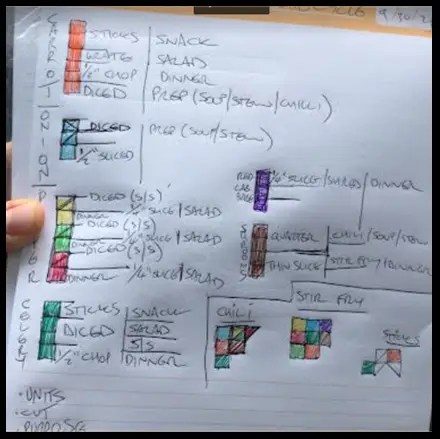 CARROT
STICKS | SNACK
GRATE | SALAD
1/2" CHOP | DINNER
DICED | PREP (SOUP/STEW/CHILLI)
ONION
DICED | PREP (SOUP/STEW)
1/2" SLICED
RED CAB
1/4" SLICE / SHRED / DINNER
DICED (S/S)
DINNER 1/4" SLICE | SALAD
DICED (S/S)
DINNER 1/4" SLICE | SALAD
DICED (S/S)
DINNER 1/4" SLICE | SALAD
QUARTER | CHILI/SOUP/STEW
THIN SLICE | STIR FRY/DINNER
CELERY
STICKS | SNACK
DICED | SALAD
S/S
1/2" CHOP | DINNER
CHILI
STIR FRY
STICKS
• UNITS
• CUT
• PURPOSE